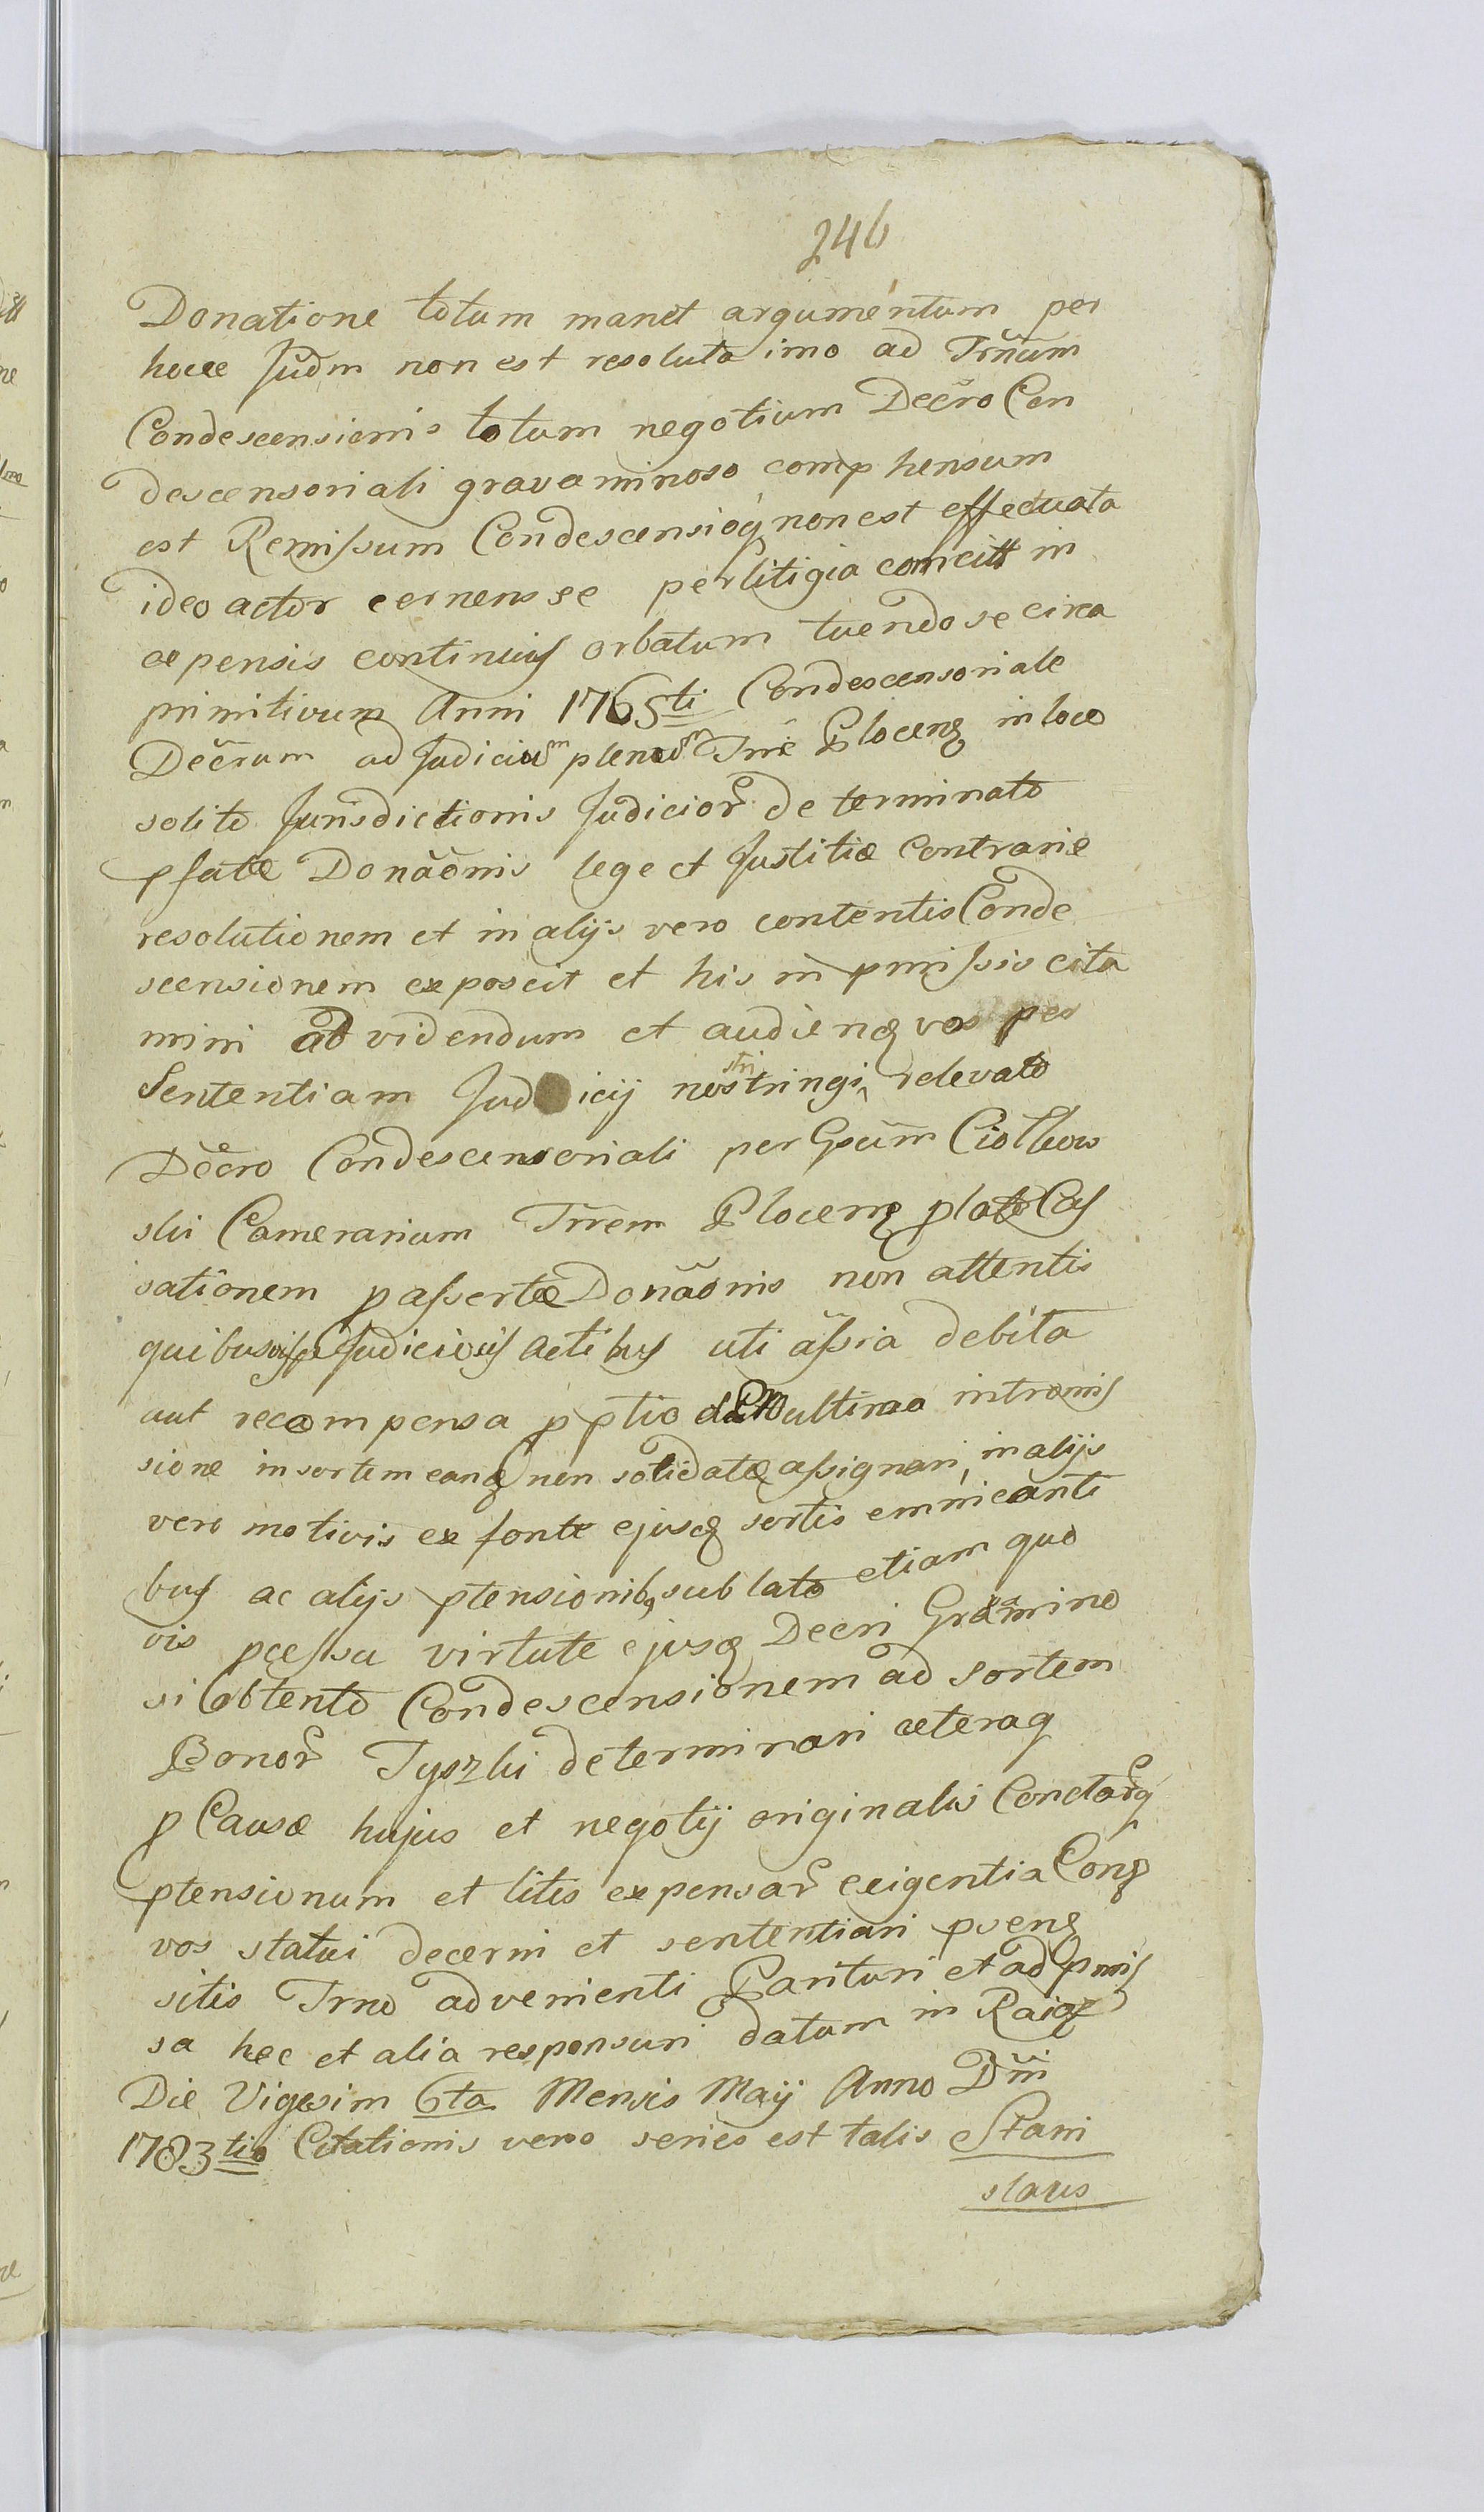 246
Donatione totum manet argumentum per
hocce Judm non est resoluta imo ad Trnum
Condescensionis totum negotium Decro Con
descensoriali gravaminoso comphensum
est Remissum Condescensioq non est effectuata
ideo actor cernens se per litigia in
expensis continuis orbatum tuendo se circa
primitivum Anni 1765ti Condescensoriale
Decrum ad Judicium plenum Trre Plocens in loco
solito Jurisdictionis Judicior determinato
pfatæ Donaõnis lege et Justitiæ contrariæ
resolutionem et in alijs vero contentis Conde
scensionem exposcit et his in pmissis cita
mini ad videndum et audien vos per
Sententiam Judicij nostri stringi, relevato
Decro Condescensoriali per Gsum Ciołkow
ski Camerarium Trrem Plocens plato Cas
sationem passertæ Donaõnis non attentis
quibusvis Judiciosis actibus uti assia debita
aut recompensa p ptio ultimo intromis
sione in sortem eanq non solidatæ assignari, in alijs
vero motivis ex fonte ejusq sortis emmicanti
bus ac alijs ptensionibq sublato etiam quo
vis pcessu virtute ejusq Decri Gramino
si obtento Condescensionem ad sortem
Bonor Tyszki determinari ceteraq
p Causæ hujus et negotij originalis Conctarq
ptensionum et litis expensar exigentia Conq
vos statui decerni et sententiari psens
sitis Trno advenienti Parituri et ad pmis
sa hec et alia responsuri datum in Raiąz
Die Vigesim 6ta Mensis Maij Anno Dni
1783tio Citationis vero series est talis Stani
slaus